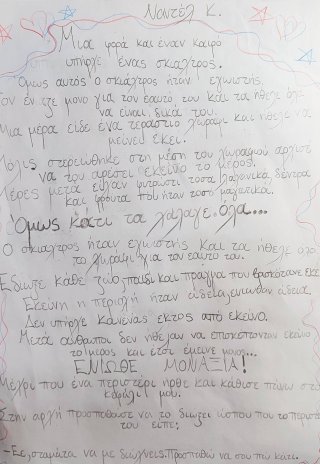 Νανтέλ Κ.
Μια φορά και έναν καιρό
υπήρχε ένας σκιάχτρος.
Όμως αυτός ο σκιάχτρος ήταν εγωιστής.
μόνο για τον εαυτό του και τα ήθελε όλα
να είναι δικά του.
Μια μέρα είδε ένα τεράστιο χωράφι και ήθελε να
μείνει εκεί.
Μόλις στερεώθηκε στη μέση του χωραφιού άρχισε
να του αρέσει εκείνο το μέρος.
Μέρες μετά είχαν φυτρώσει τόσα λαχανικά, δέντρα
και φρούτα που ήταν τόσο μαγευτικά.
Όμως κάτι τα χάλαγε όλα...
Ο σκιάχτρος ήταν εγωιστής και τα ήθελε όλο
το χωράφι για τον εαυτό του.
Έδιωξε κάθε ζώο, παιδί και πράγμα που βρισκόταν εκεί
Εκείνη η περιοχή ήταν άδεια,
Δεν υπήρχε κανένας εκτός από εκείνο.
Μετά άνθρωποι δεν ήθελαν να επισκέπτονταν εκείνο
το μέρος και έτσι έμεινε μόνος...
ΕΝΙΩΘΕ ΜΟΝΑΞΙΑ!
Μέχρι που ένα περιστέρι ήρθε και κάθισε πάνω στο
κεφάλι μου.
Στην αρχή προσπάθησε να το διώξει ώσπου που το περιστέρι
του είπε:
-Εε, σταμάτα να με διώχνεις. Προσπαθώ να σου πω κάτι.